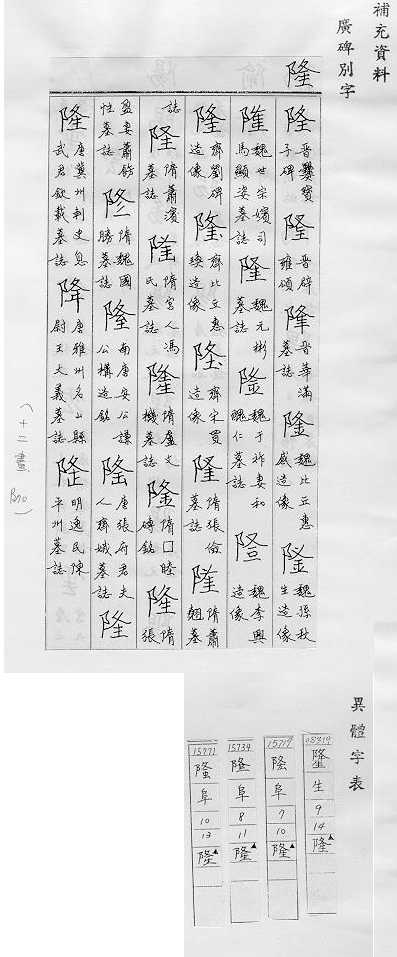 補充資料
廣碑別字
隆
隆 晉爨寶子碑 隆 晉辟雍頌 隆 晉華滿墓誌 隆 魏比丘惠感造像 隆 魏孫秋生造像
隆 魏世宗嬪司馬顯姿墓誌 隆 魏元彬墓誌 隆 魏于祚妻和醜仁墓誌 隆 魏李興造像
隆 齊劉碑造像 隆 齊比丘惠瑍造像 隆 齊宋買造像 隆 隋張儉墓誌 隆 隋蕭翹墓
誌 隆 隋蕭濱墓誌 隆 隋宮人馮氏墓誌 隆 隋盧文機墓誌 隆 隋口睦碑銘 隆 隋張
盈妻蕭飭性墓誌 隆 隋魏國勝墓誌 隆 南唐安公謙公構造銘 隆 唐張府君夫人齊娥墓誌 隆
隆 唐冀州刺史息武君欽載墓誌 隆 唐雅州名山縣尉王大義墓誌 隆 明逸民陳平州墓誌
(十二畫 870)
異體字表
隆 生 9 14 隆
15717 隆 阜 7 10 隆
15734 隆 阜 8 11 隆
15771 隆 阜 10 13 隆